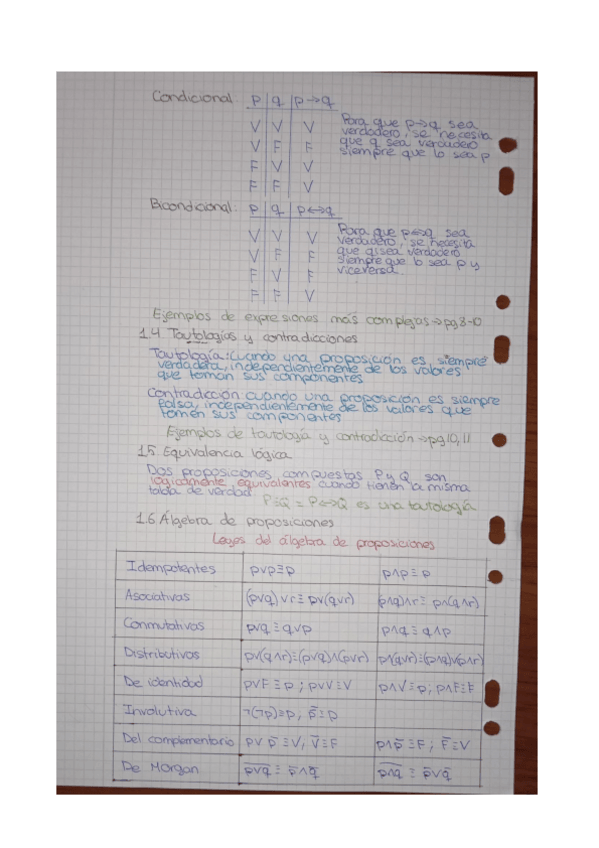 Condicional p q p→q
V V V
V F F
F V V
F F V
Para que p→q sea
verdadero, se necesita
que q sea verdadero
siempre que lo sea p
Bicondicional p q p↔q
V V V
V F F
F V F
F F V
Para que p↔q sea
verdadero, se necesita
que q sea verdadero
siempre que lo sea p y
viceversa
Ejemplos de expresiones más complejas→pg 8-10
1.4 Tautologías y contradicciones
Tautología: Cuando una proposición es siempre
verdadera, independientemente de los valores
que toman sus componentes
Contradicción cuando una proposición es siempre
falsa, independientemente de los valores que
tomen sus componentes
Ejemplos de tautología y contradicción→pg 10, 11
1.5 Equivalencia lógica
Dos proposiciones compuestas P y Q son
lógicamente equivalentes cuando tienen la misma
tabla de verdad P≡Q = P↔Q es una tautología
1.6 Álgebra de proposiciones
Leyes del álgebra de proposiciones
Idempotentes p∨p≡p p∧p≡p
Asociativas (p∨q)∨r≡p∨(q∨r) (p∧q)∧r≡p∧(q∧r)
Conmutativas p∨q≡q∨p p∧q≡q∧p
Distributivas p∨(q∧r)≡(p∨q)∧(p∨r) p∧(q∨r)≡(p∧q)∨(p∧r)
De identidad p∨F≡p; p∨V≡V p∧V≡p; p∧F≡F
Involutiva ¬(¬p)≡p, p̿≡p
Del complementario p∨p̅≡V; V̅≡F p∧p̅≡F; F̅≡V
De Morgan p̅∨̅q̅≡p̅∧q̅ p̅∧̅q̅≡p̅∨q̅